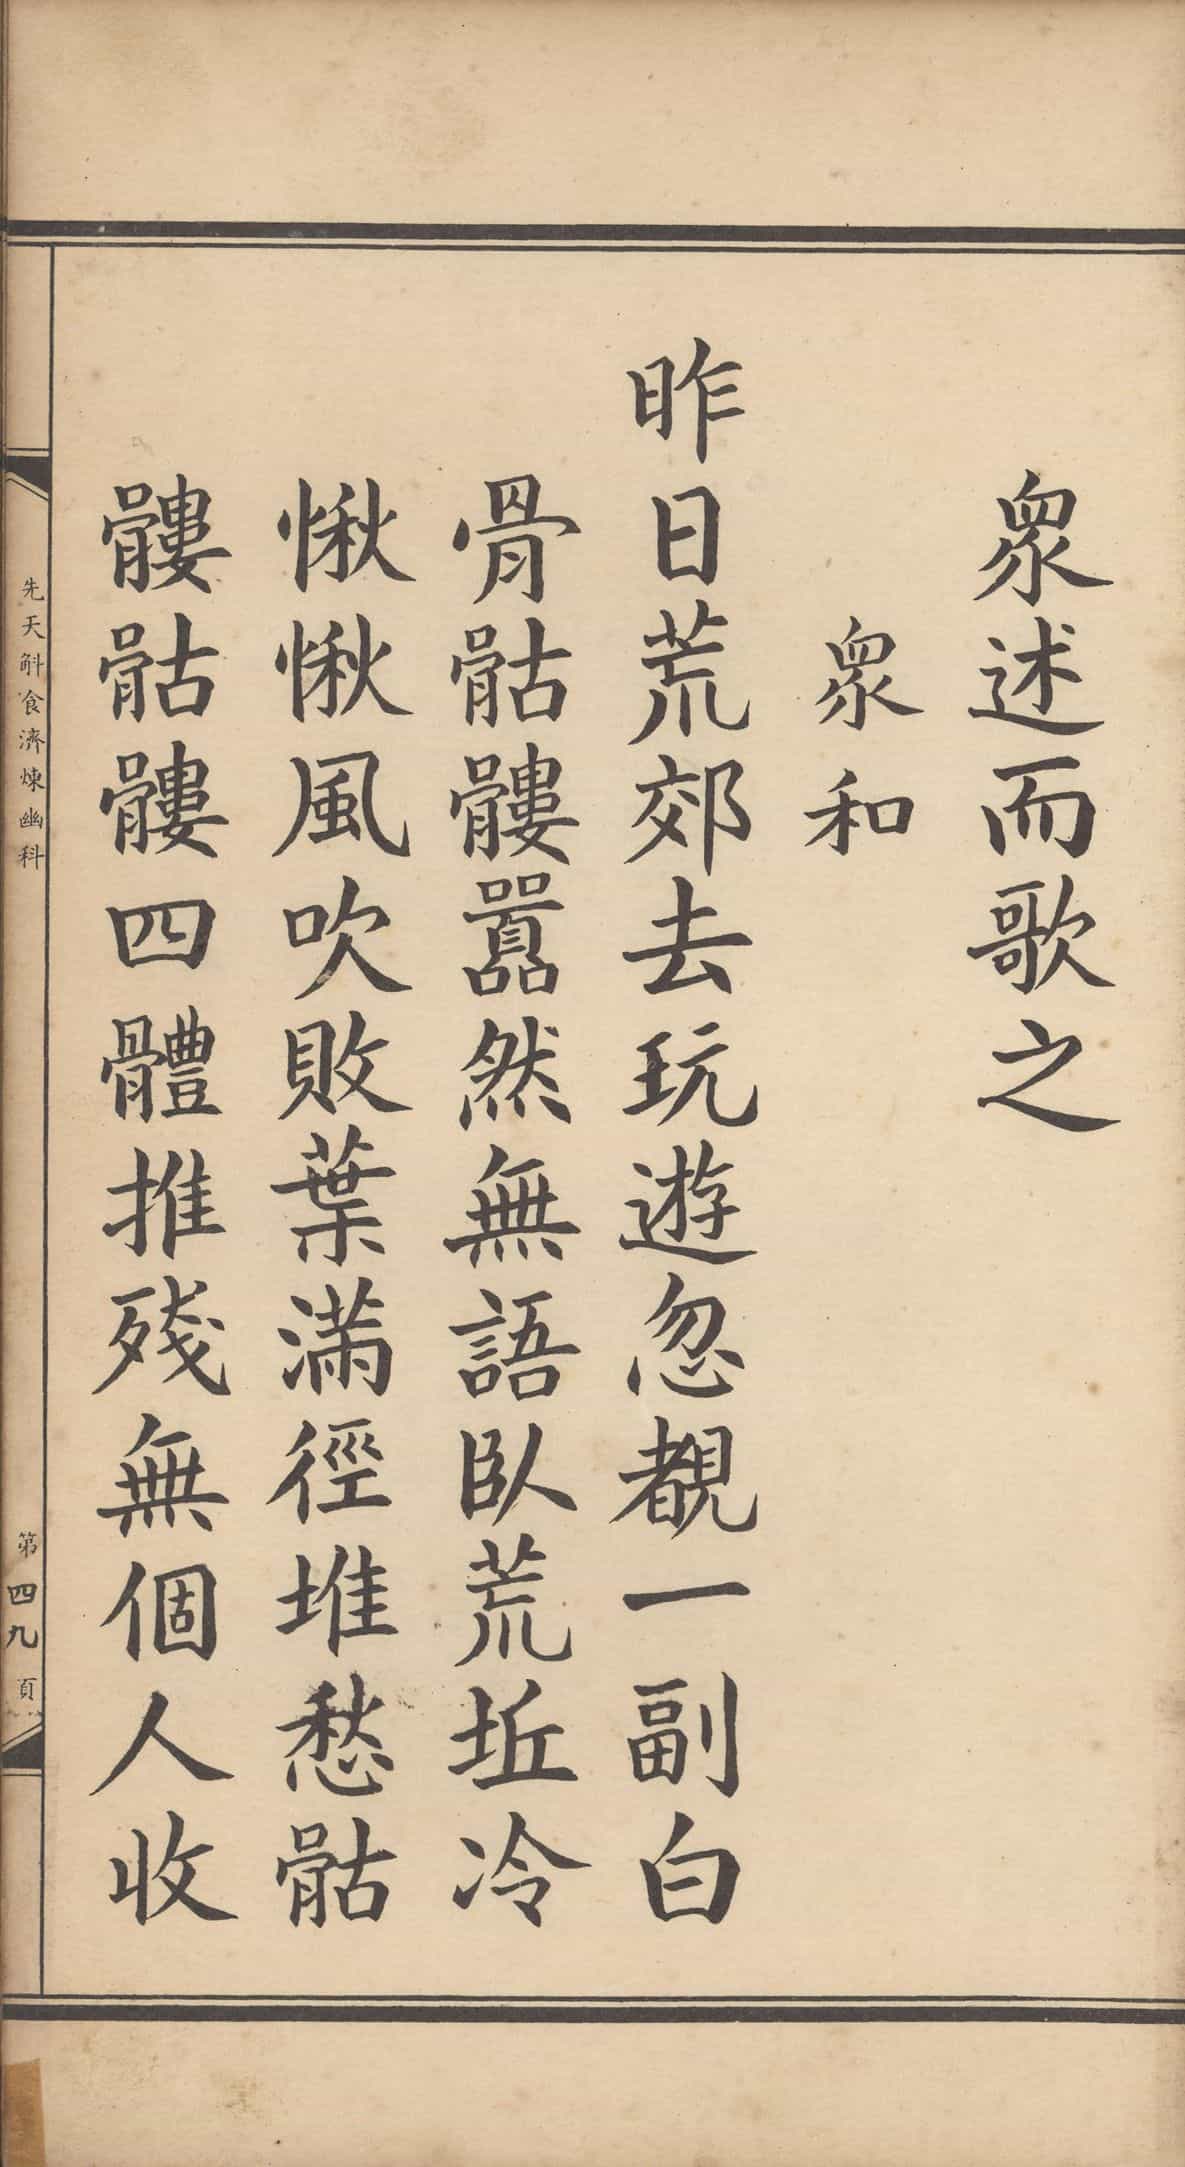 眾述而歌之
眾和
昨日荒郊去玩遊忽覩一副白
骨骷髏囂然無語臥荒坵冷
愀愀風吹敗葉滿徑堆愁骷
髏骷髏四體推殘無個人收
先天斛食濟煉幽科
第四九頁